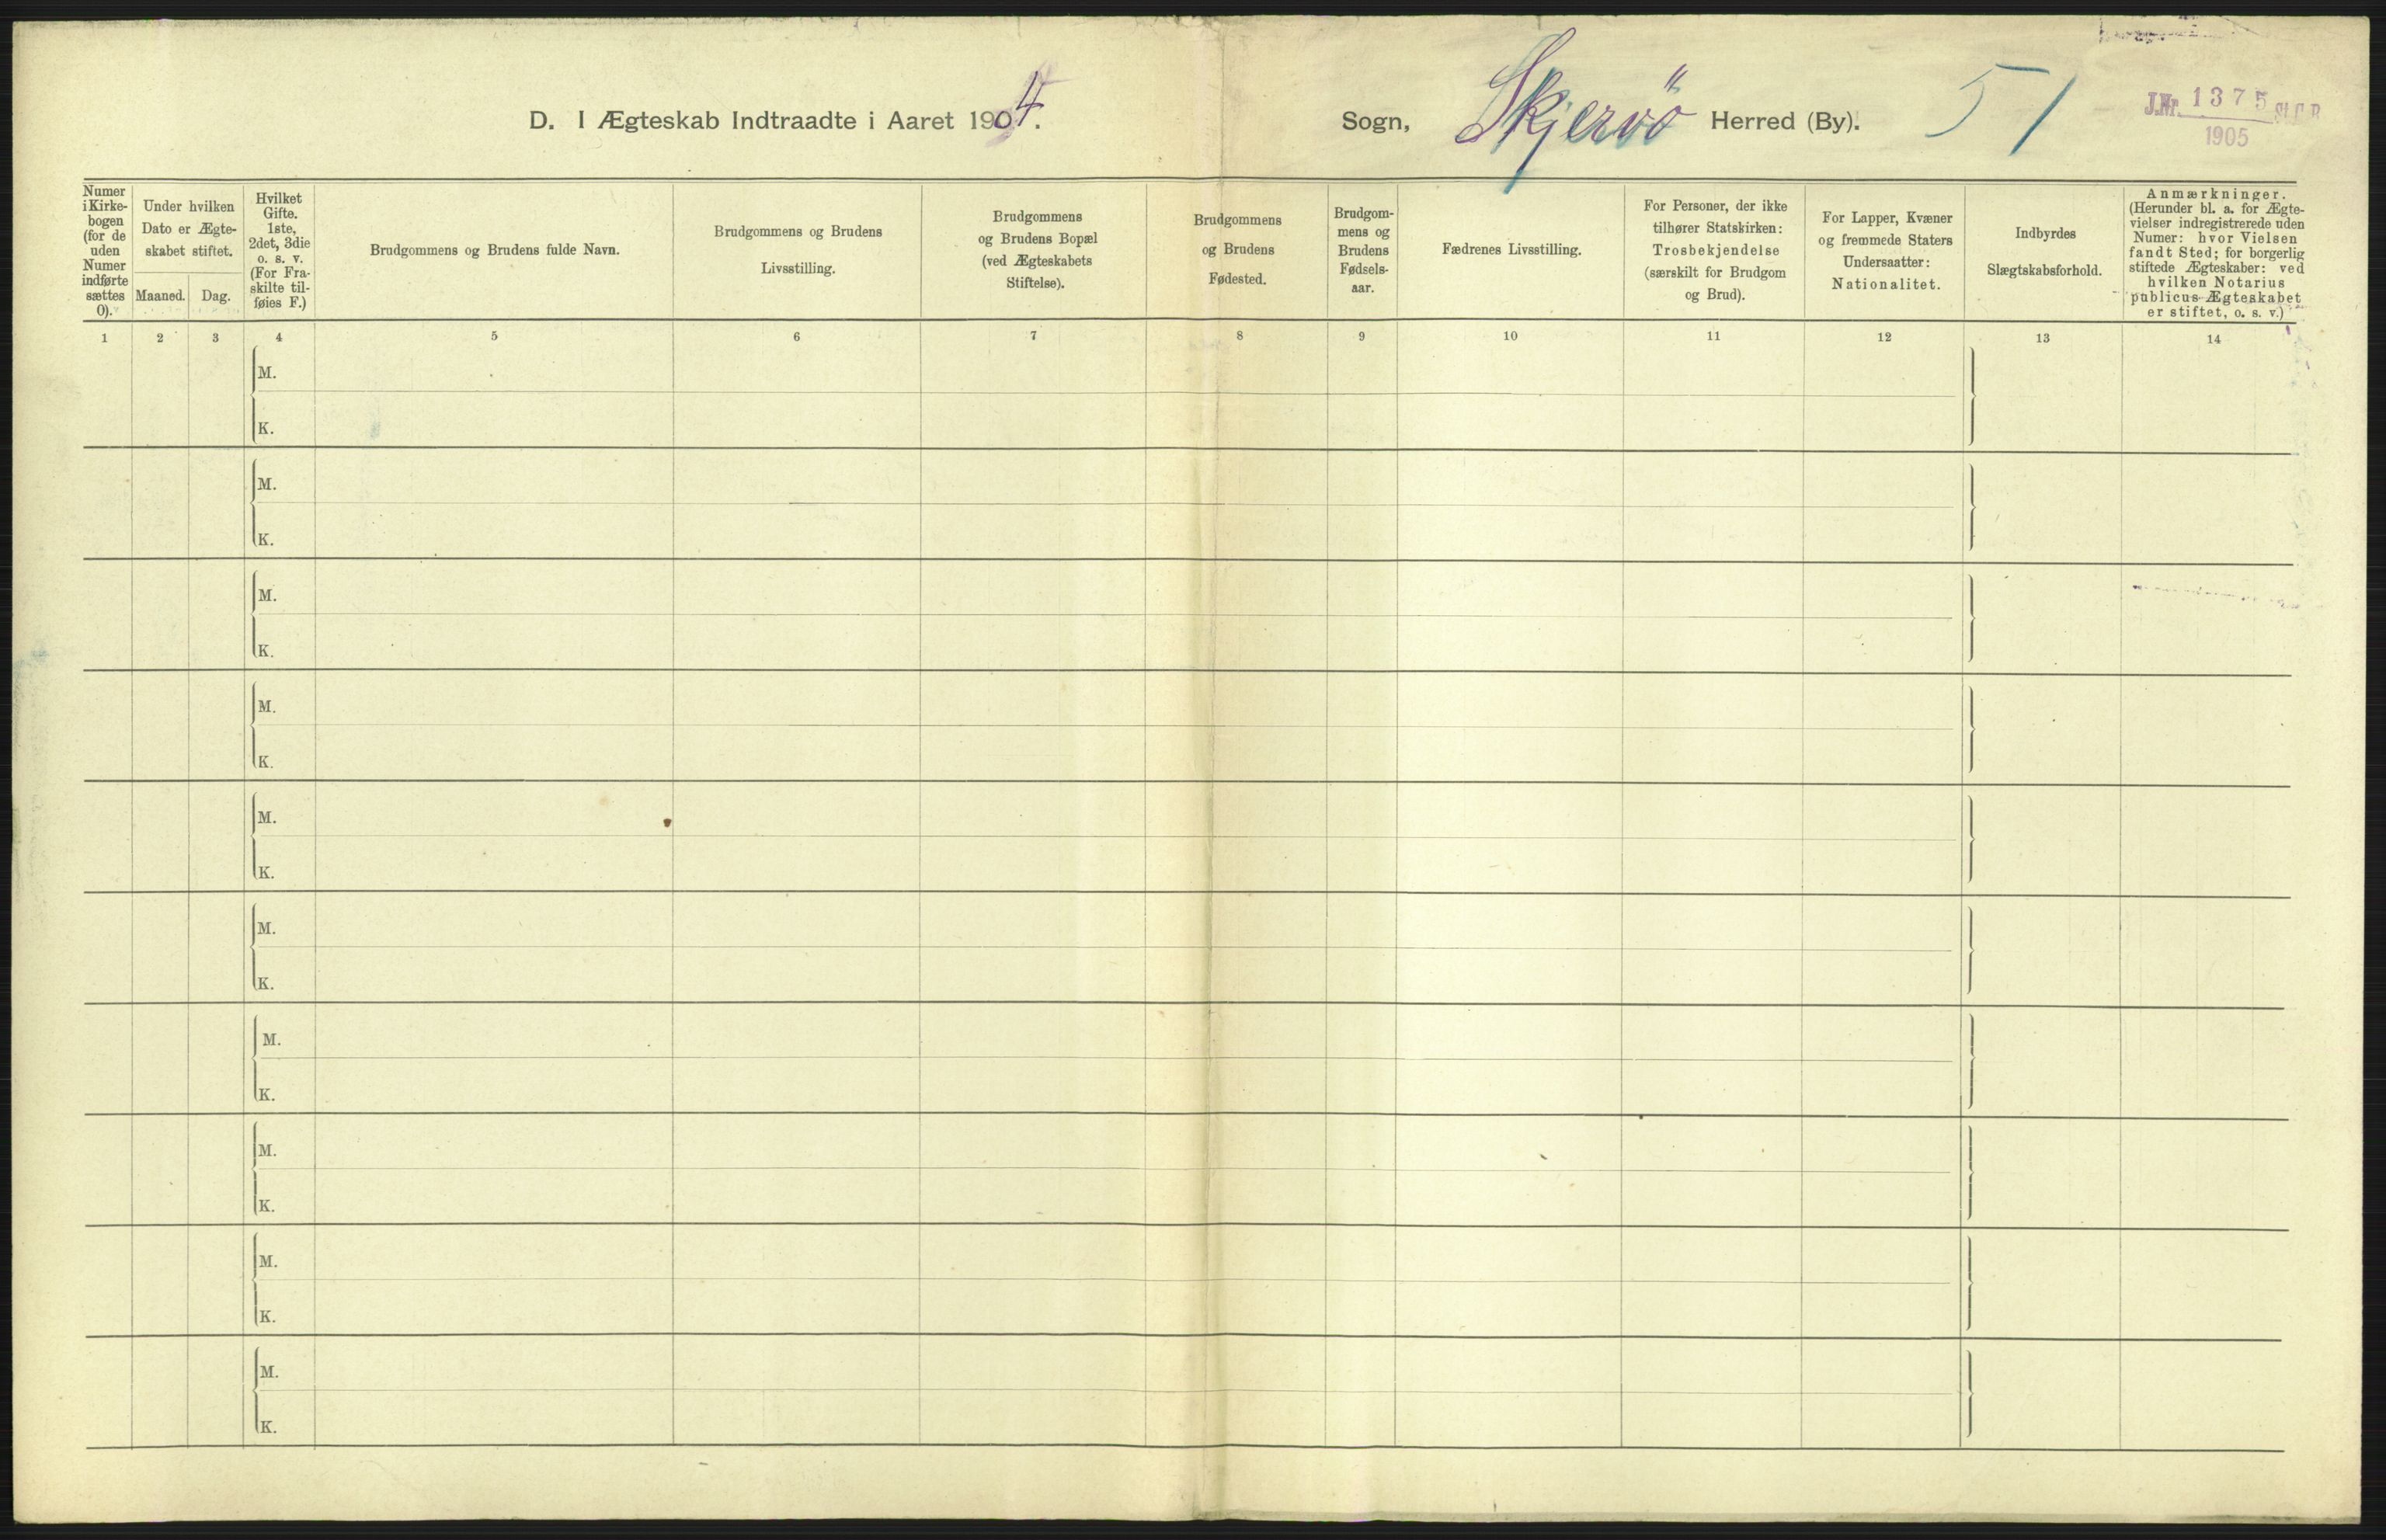 D. I Ægteskab Indtraadte i Aaret 1904.
Sogn, Skjervö Herred (By). 51
J.Nr. 1375 St.C.B.
1905
Numer
i Kirke-
bogen
(for de
uden
Numer
indførte
sættes
0).
Under hvilken
Dato er Ægte-
skabet stiftet.
Maaned. Dag.
Hvilket
Gifte.
1ste,
2det, 3die
o. s. v.
(For Fra-
skilte til-
føies F.)
Brudgommens og Brudens fulde Navn.
Brudgommens og Brudens
Livsstilling.
Brudgommens
og Brudens Bopæl
(ved Ægteskabets
Stiftelse).
Brudgommens
og Brudens
Fødested.
Brudgom-
mens og
Brudens
Fødsels-
aar.
Fædrenes Livsstilling.
For Personer, der ikke
tilhører Statskirken:
Trosbekjendelse
(særskilt for Brudgom
og Brud).
For Lapper, Kvæner
og fremmede Staters
Undersaatter:
Nationalitet.
Indbyrdes
Slægtskabsforhold.
Anmærkninger.
(Herunder bl. a. for Ægte-
vielser indregistrerede uden
Numer: hvor Vielsen
fandt Sted; for borgerlig
stiftede Ægteskaber: ved
hvilken Notarius
publicus Ægteskabet
er stiftet, o. s. v.)
1 2 3 4 5 6 7 8 9 10 11 12 13 14
M.
K.
M.
K.
M.
K.
M.
K.
M.
K.
M.
K.
M.
K.
M.
K.
M.
K.
M.
K.